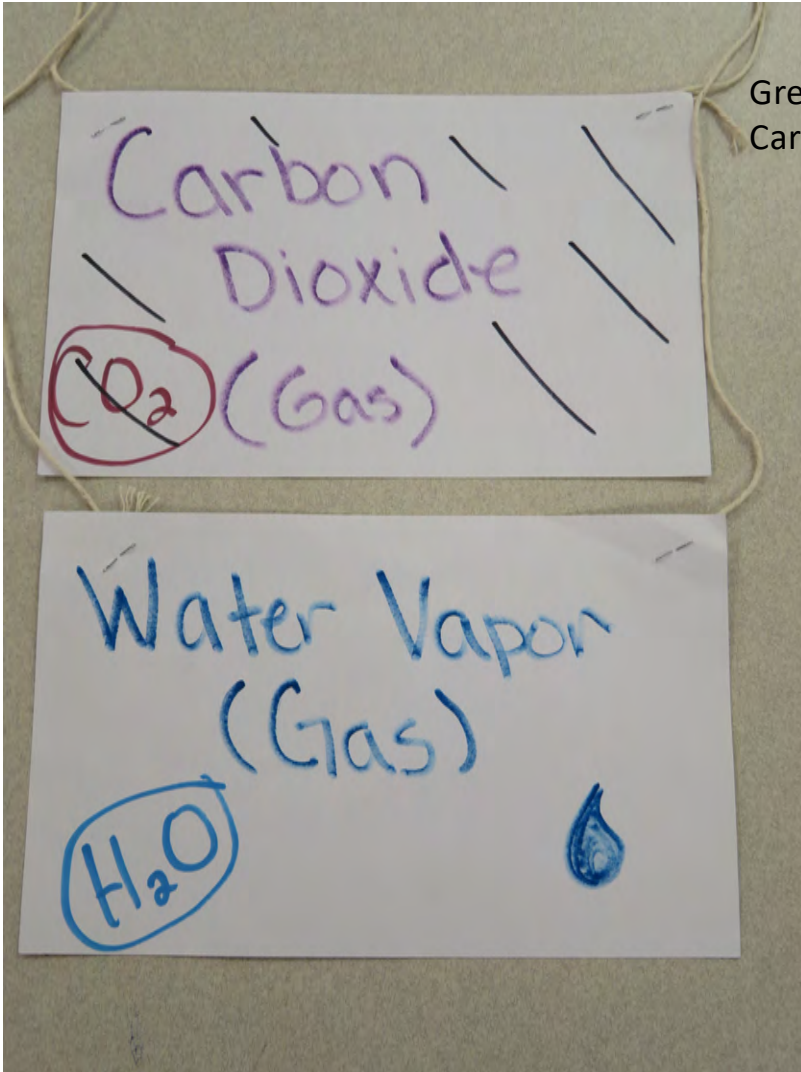 Gre
Car
Carbon
Dioxide
CO₂ (Gas)
Water Vapor
(Gas)
H₂O